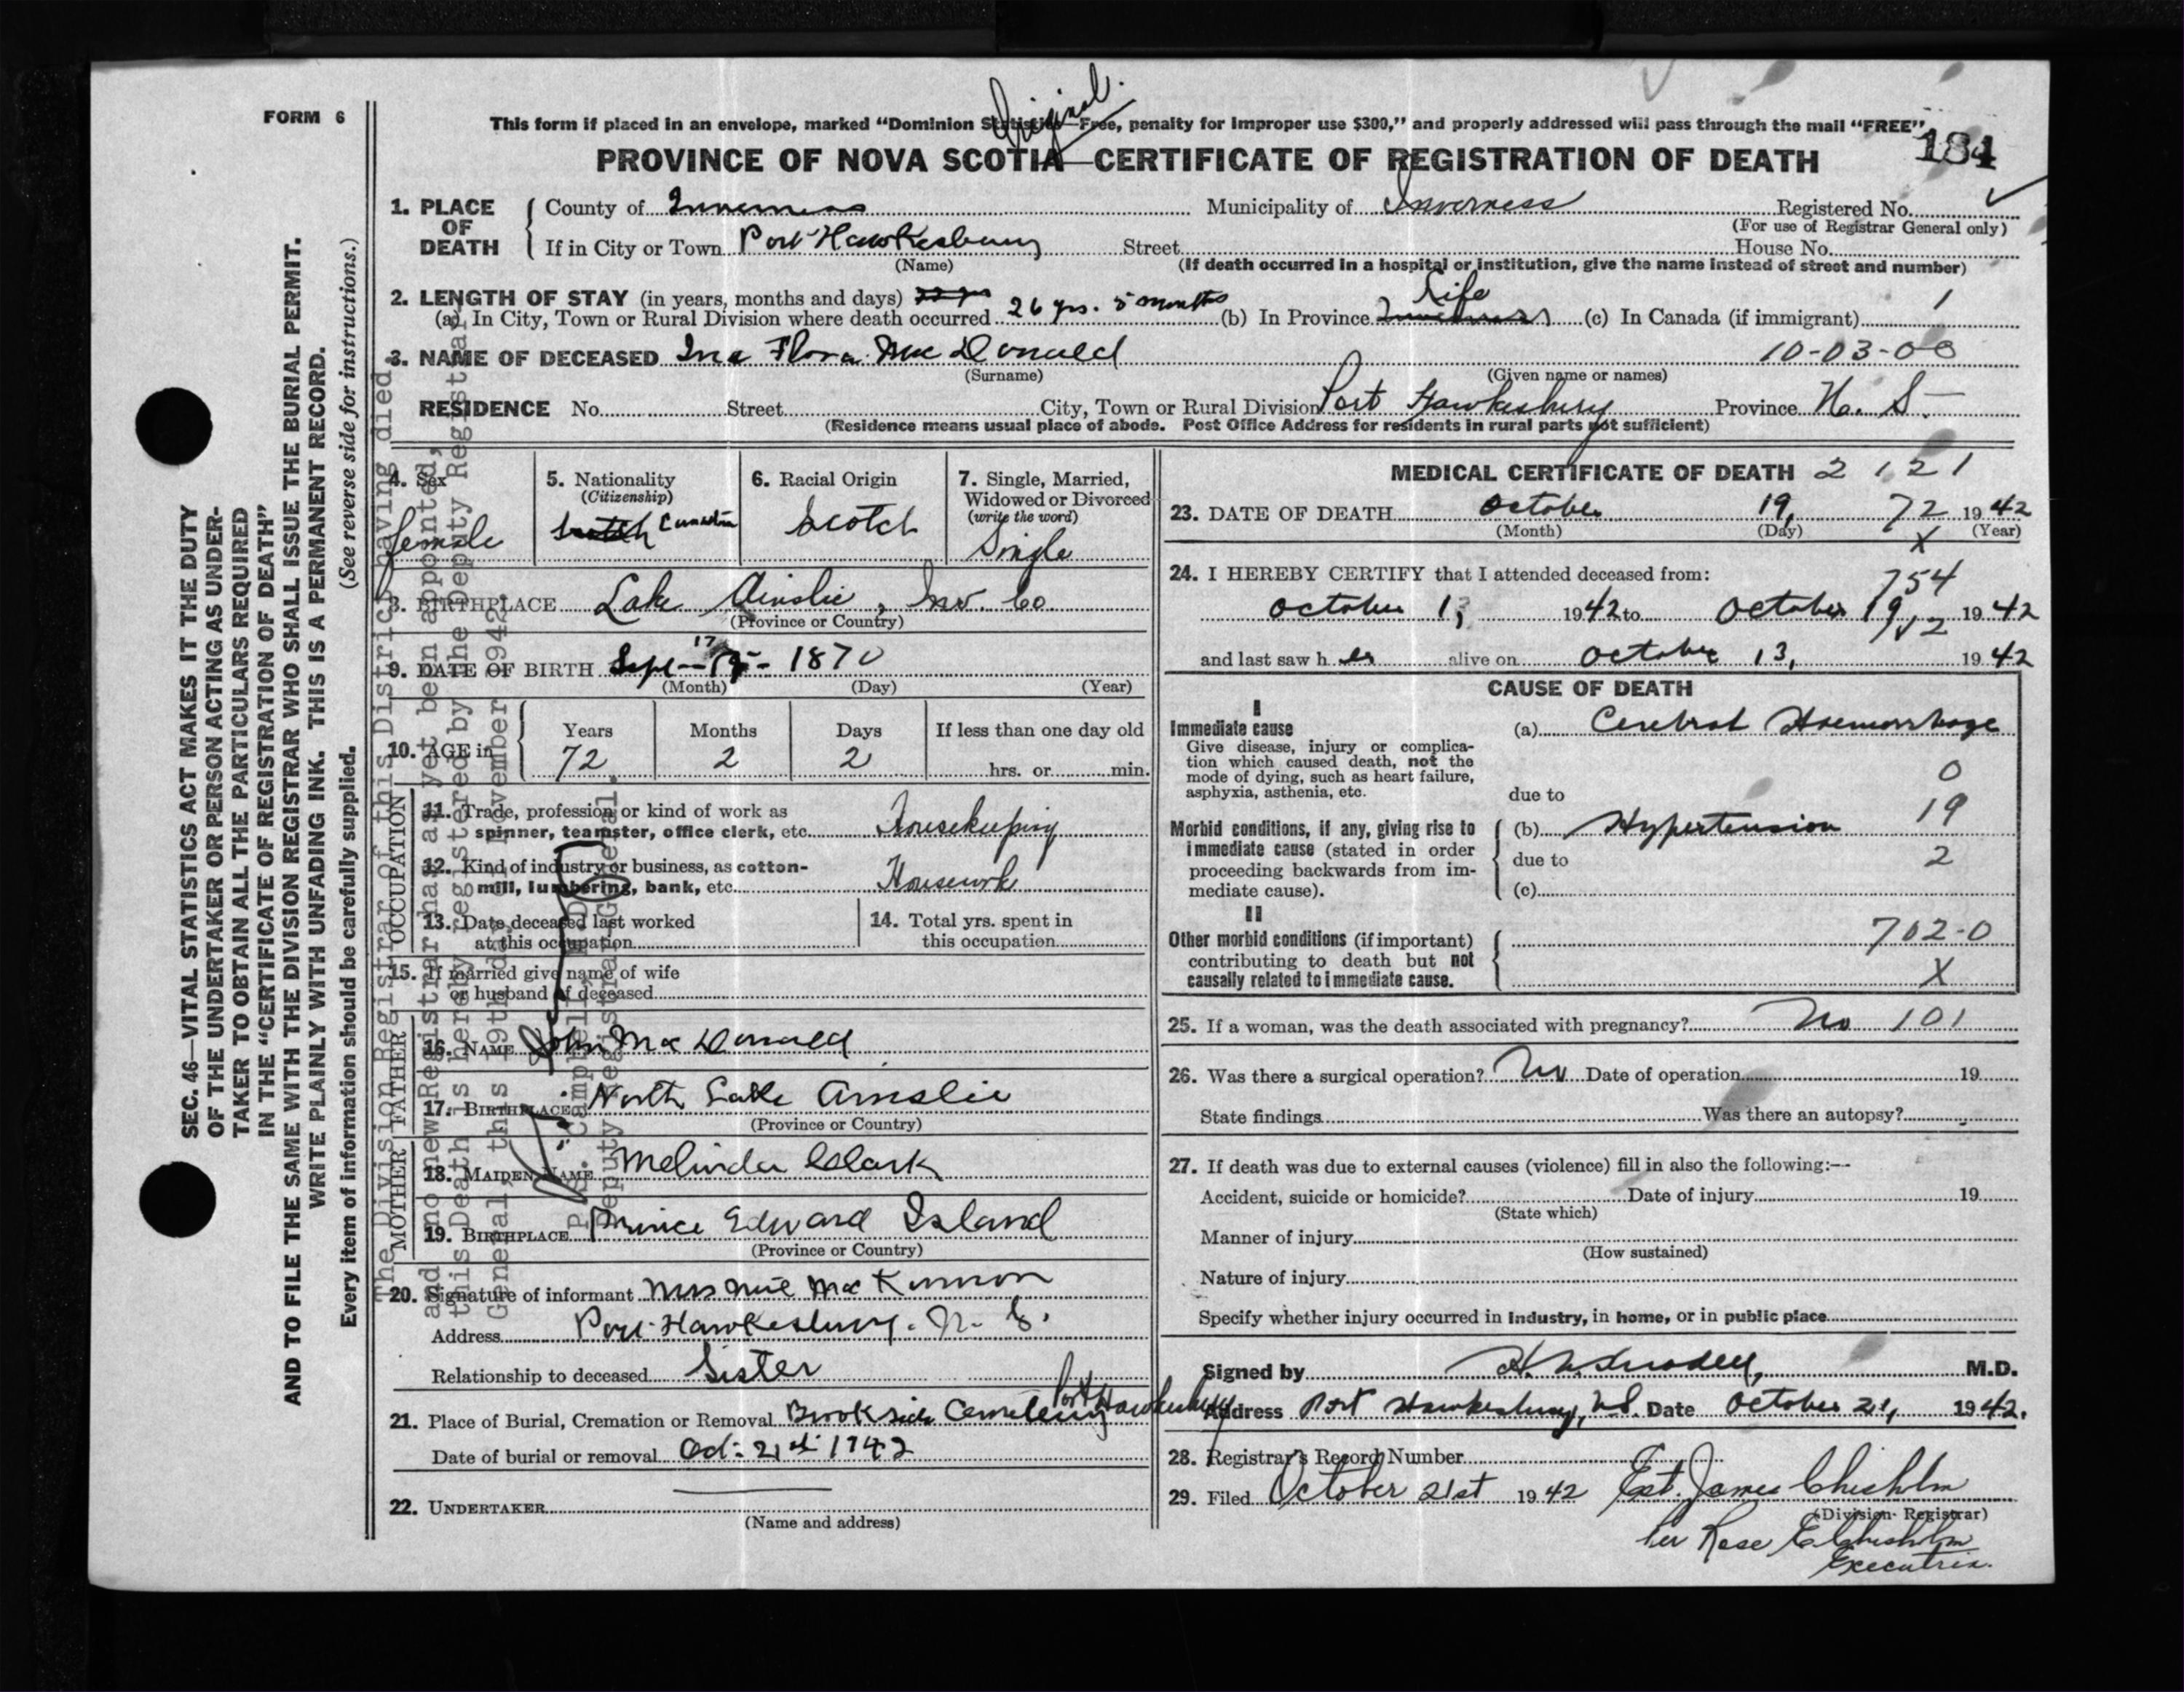 FORM 6
Original.
This form if placed in an envelope, marked "Dominion Statistics—Free, penalty for improper use $300," and properly addressed will pass through the mail "FREE"
PROVINCE OF NOVA SCOTIA—CERTIFICATE OF REGISTRATION OF DEATH 184
1. PLACE OF DEATH County of Inverness Municipality of Inverness Registered No.
(For use of Registrar General only)
If in City or Town Port Hawkesbury Street House No.
(Name) (If death occurred in a hospital or institution, give the name instead of street and number)
2. LENGTH OF STAY (in years, months and days)
(a) In City, Town or Rural Division where death occurred 26 yrs. 5 months (b) In Province Life (c) In Canada (if immigrant) 1
3. NAME OF DECEASED Ina Flora MacDonald 10-03-00
(Surname) (Given name or names)
RESIDENCE No. Street City, Town or Rural Division Port Hawkesbury Province N. S.
(Residence means usual place of abode. Post Office Address for residents in rural parts not sufficient)
4. Sex female
5. Nationality (Citizenship) Scotch Canadian
6. Racial Origin Scotch
7. Single, Married, Widowed or Divorced (write the word) Single
8. BIRTHPLACE Lake Ainslie, Inv. Co
(Province or Country)
9. DATE OF BIRTH Sept 17 1870
(Month) (Day) (Year)
10. AGE in Years 72 Months 2 Days 2 If less than one day old hrs. or min.
OCCUPATION
11. Trade, profession or kind of work as spinner, teamster, office clerk, etc. Housekeeping
12. Kind of industry or business, as cotton-mill, lumbering, bank, etc. Housework
13. Date deceased last worked at this occupation
14. Total yrs. spent in this occupation
15. If married give name of wife or husband of deceased
FATHER
16. NAME John MacDonald
17. BIRTHPLACE North Lake Ainslie
(Province or Country)
MOTHER
18. MAIDEN NAME Melinda Clark
19. BIRTHPLACE Prince Edward Island
(Province or Country)
20. Signature of informant Mrs Neil MacKinnon
Address Port Hawkesbury. N. S.
Relationship to deceased Sister
21. Place of Burial, Cremation or Removal Brookside Cemetery Port Hawkesbury
Date of burial or removal Oct: 21st 1942
22. UNDERTAKER
(Name and address)
MEDICAL CERTIFICATE OF DEATH 2121
23. DATE OF DEATH October 19, 72 1942
(Month) (Day) (Year)
X
24. I HEREBY CERTIFY that I attended deceased from:
754
October 1, 1942 to October 19 1942
and last saw her alive on October 13, 1942
CAUSE OF DEATH
I
Immediate cause
Give disease, injury or complication which caused death, not the mode of dying, such as heart failure, asphyxia, asthenia, etc.
(a) Cerebral Haemorrhage
0
due to
19
Morbid conditions, if any, giving rise to immediate cause (stated in order proceeding backwards from immediate cause).
(b) Hypertension
due to 2
(c)
II
Other morbid conditions (if important) contributing to death but not causally related to immediate cause.
702-0
X
25. If a woman, was the death associated with pregnancy? No 101
26. Was there a surgical operation? No Date of operation 19
State findings Was there an autopsy?
27. If death was due to external causes (violence) fill in also the following:—
Accident, suicide or homicide? Date of injury 19
(State which)
Manner of injury
(How sustained)
Nature of injury
Specify whether injury occurred in industry, in home, or in public place
Signed by M.D.
Address Port Hawkesbury, N.S. Date October 21, 1942.
28. Registrar's Record Number
29. Filed October 21st 1942 Est. James Chisholm
(Division Registrar)
Per Rose E Chisholm
Executrix.
SEC. 46—VITAL STATISTICS ACT MAKES IT THE DUTY
OF THE UNDERTAKER OR PERSON ACTING AS UNDER-
TAKER TO OBTAIN ALL THE PARTICULARS REQUIRED
IN THE "CERTIFICATE OF REGISTRATION OF DEATH"
AND TO FILE THE SAME WITH THE DIVISION REGISTRAR WHO SHALL ISSUE THE BURIAL PERMIT.
WRITE PLAINLY WITH UNFADING INK. THIS IS A PERMANENT RECORD.
Every item of information should be carefully supplied. (See reverse side for instructions.)
The Division Registrar of this District having died,
and no new Registrar has as yet been appointed,
this Death is hereby registered by the Deputy Registrar
General, this 19th day November 1942.
Campbell
Deputy Registrar General.